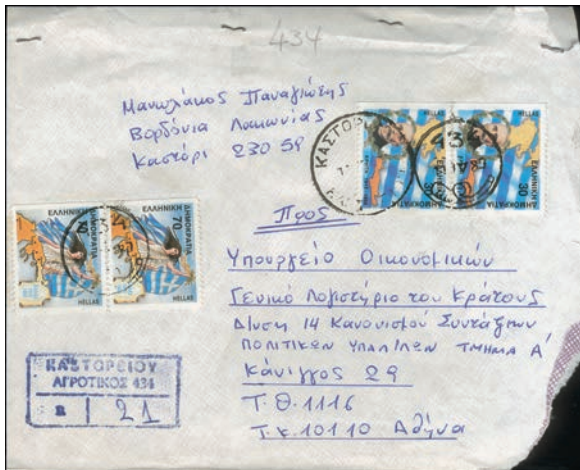 434
Μανωλάκος Παναγιώτης
Βορδόνια Λακωνίας
Καστόρι 230 59
ΚΑΣΤΟΡ
434
ΕΛΛΗΝΙΚΗ ΔΗΜΟΚΡΑΤΙΑ
30
HELLAS
ΕΛΛΗΝΙΚΗ ΔΗΜΟΚΡΑΤΙΑ
30
HELLAS
ΕΛΛΗΝΙΚΗ ΔΗΜΟΚΡΑΤΙΑ
70
HELLAS
ΕΛΛΗΝΙΚΗ ΔΗΜΟΚΡΑΤΙΑ
70
HELLAS
Προς
Υπουργείο Οικονομικών
Γενικό Λογιστήριο του Κράτους
Δ/νση 14 Κανονισμού Συντάξεων
ΠΟΛΙΤΙΚΩΝ ΥΠΑΛΛΩΝ ΤΜΗΜΑ Α'
Κάνιγγος 29
Τ.Θ. 1116
Τ.κ. 10110 Αθήνα
ΚΑΣΤΟΡΕΙΟΥ
ΑΓΡΟΤΙΚΟΣ 434
R 21